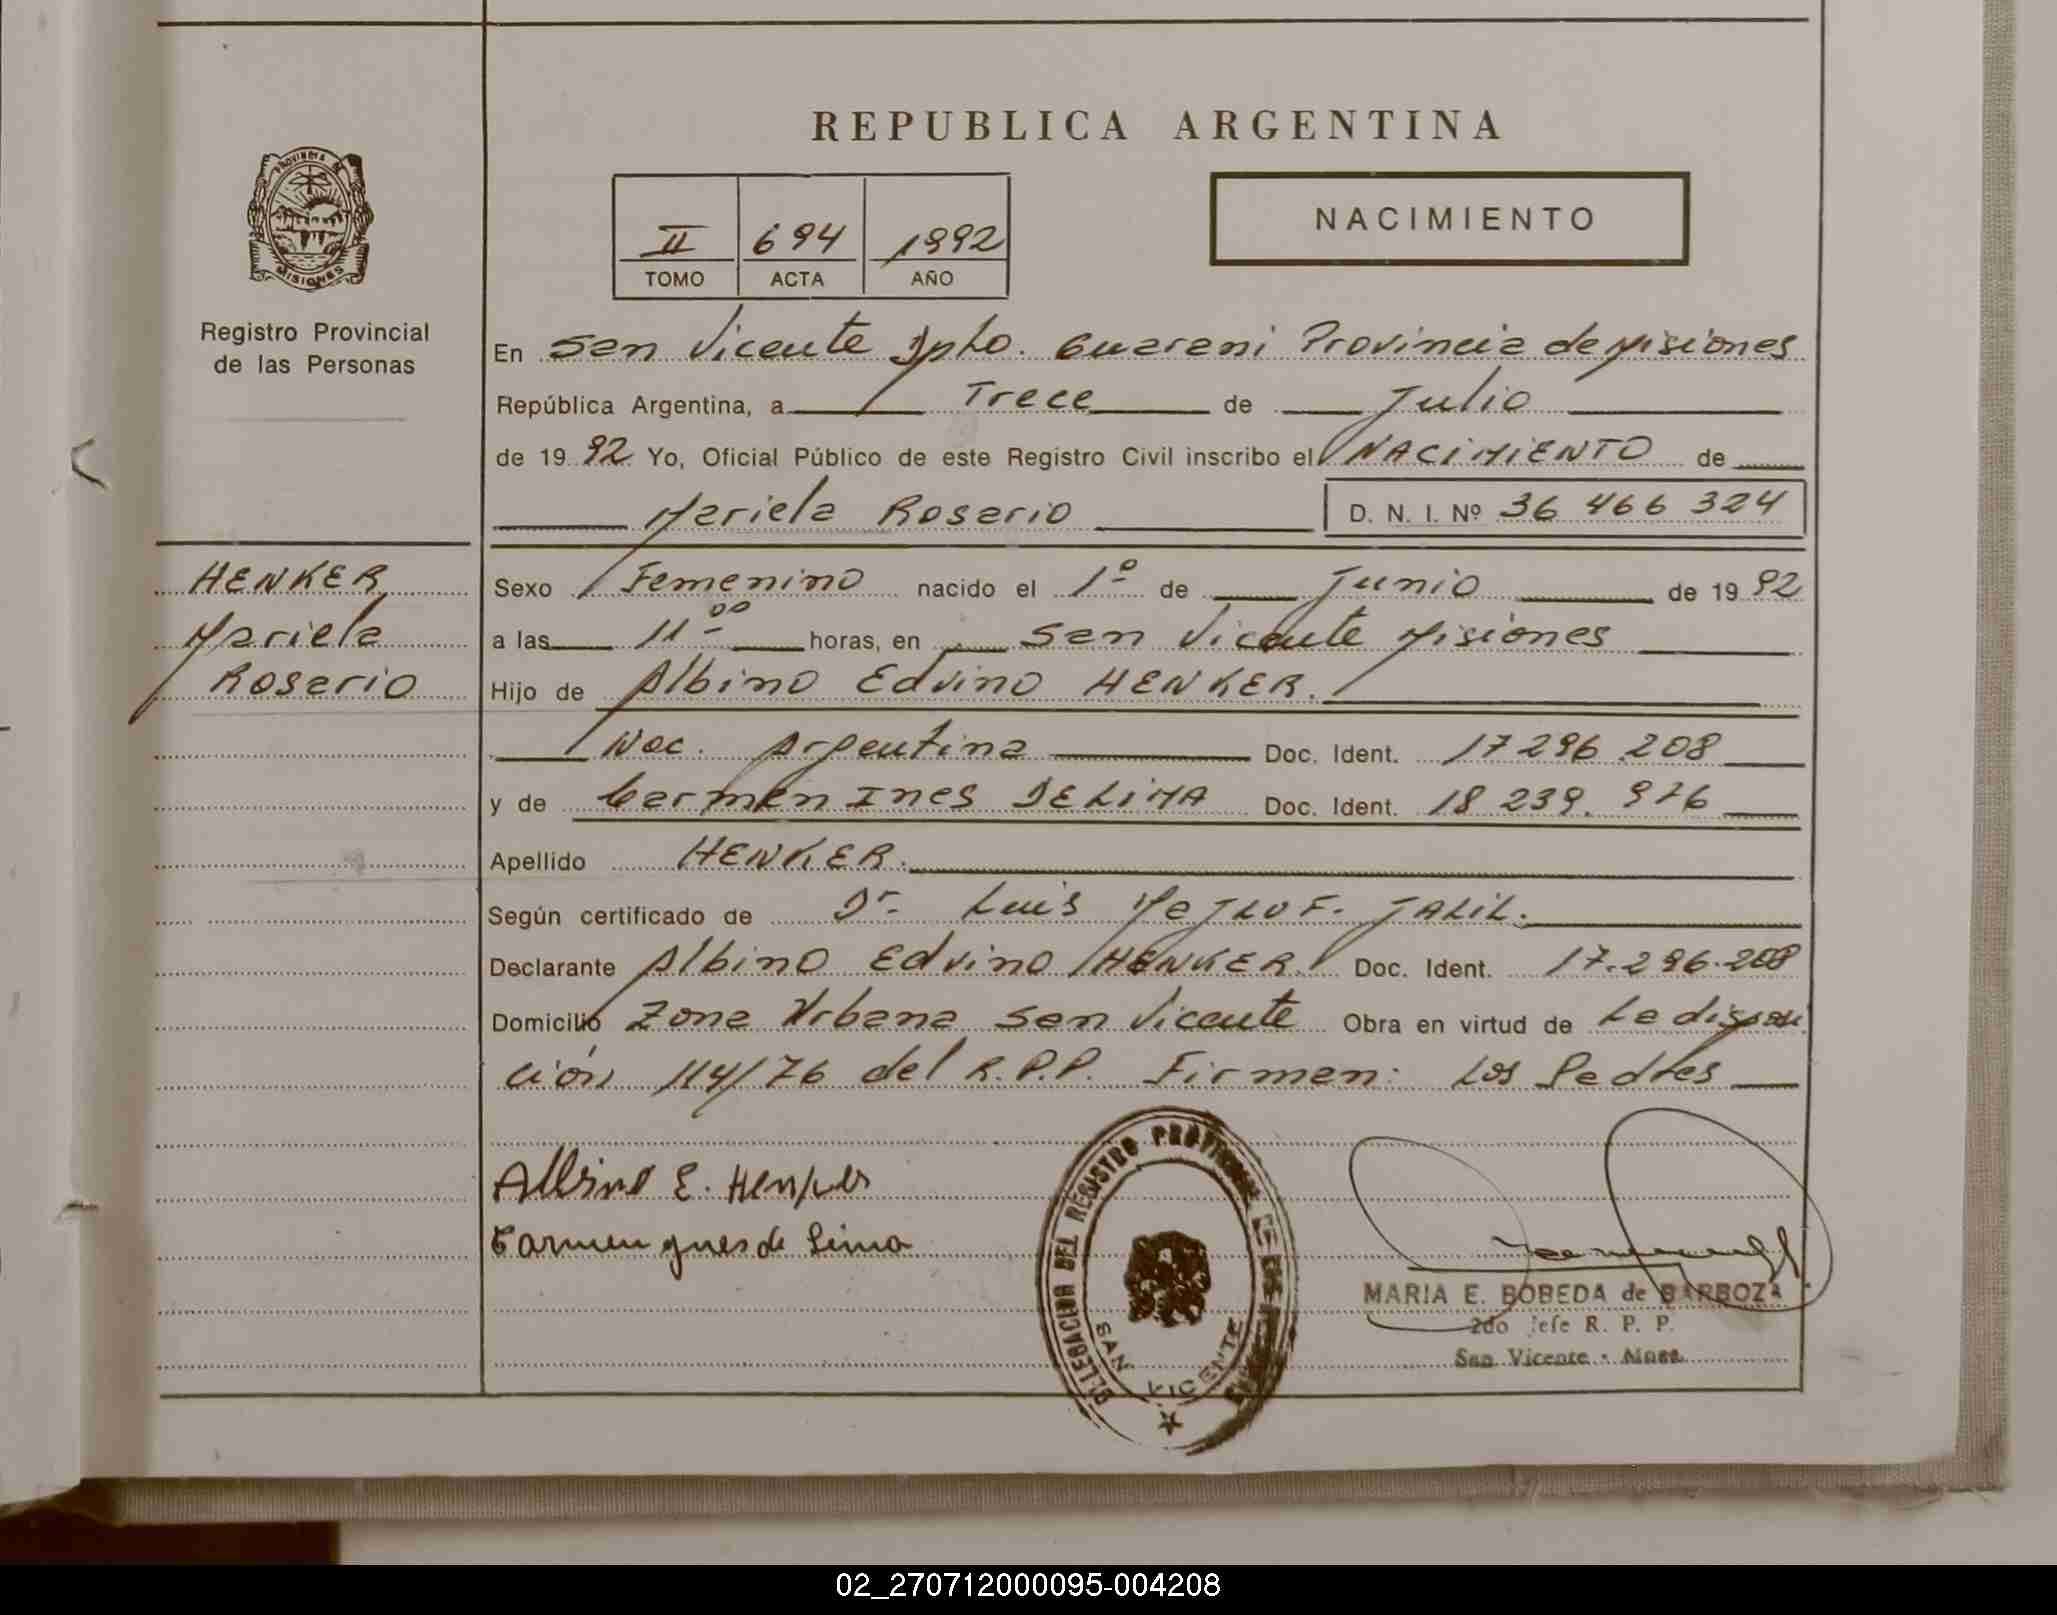 REPUBLICA ARGENTINA
PROVINCIA DE
MISIONES
Registro Provincial
de las Personas
II 694 1992
TOMO ACTA AÑO
NACIMIENTO
En San Vicente Dpto. Guarani Provincia de Misiones
República Argentina, a Trece de Julio
de 19 92 Yo, Oficial Público de este Registro Civil inscribo el NACIMIENTO de
Mariela Rosario D. N. I. Nº 36 466 324
HENKER
Mariela
Rosario
Sexo Femenino nacido el 1º de Junio de 19 92
a las 11 00 horas, en San Vicente Misiones
Hijo de Albino Edvino HENKER.
Nac. Argentina Doc. Ident. 17 296 208
y de Carmen Ines DELIMA Doc. Ident. 18 239. 976
Apellido HENKER.
Según certificado de Dr. Luis JALIL.
Declarante Albino Edvino HENKER. Doc. Ident. 17.296.208
Domicilio Zona Urbana San Vicente Obra en virtud de La disposi
ción 114/76 del R.P.P. Firman: Los Padres
Albino E. Henker
Carmen Ines de Lima
DELEGACION DEL REGISTRO PROVINCIAL DE LAS PERSONAS
SAN VICENTE
MARIA E. BOBEDA de BARBOZA
2do Jefe R. P. P.
San Vicente - Mnes.
02_270712000095-004208